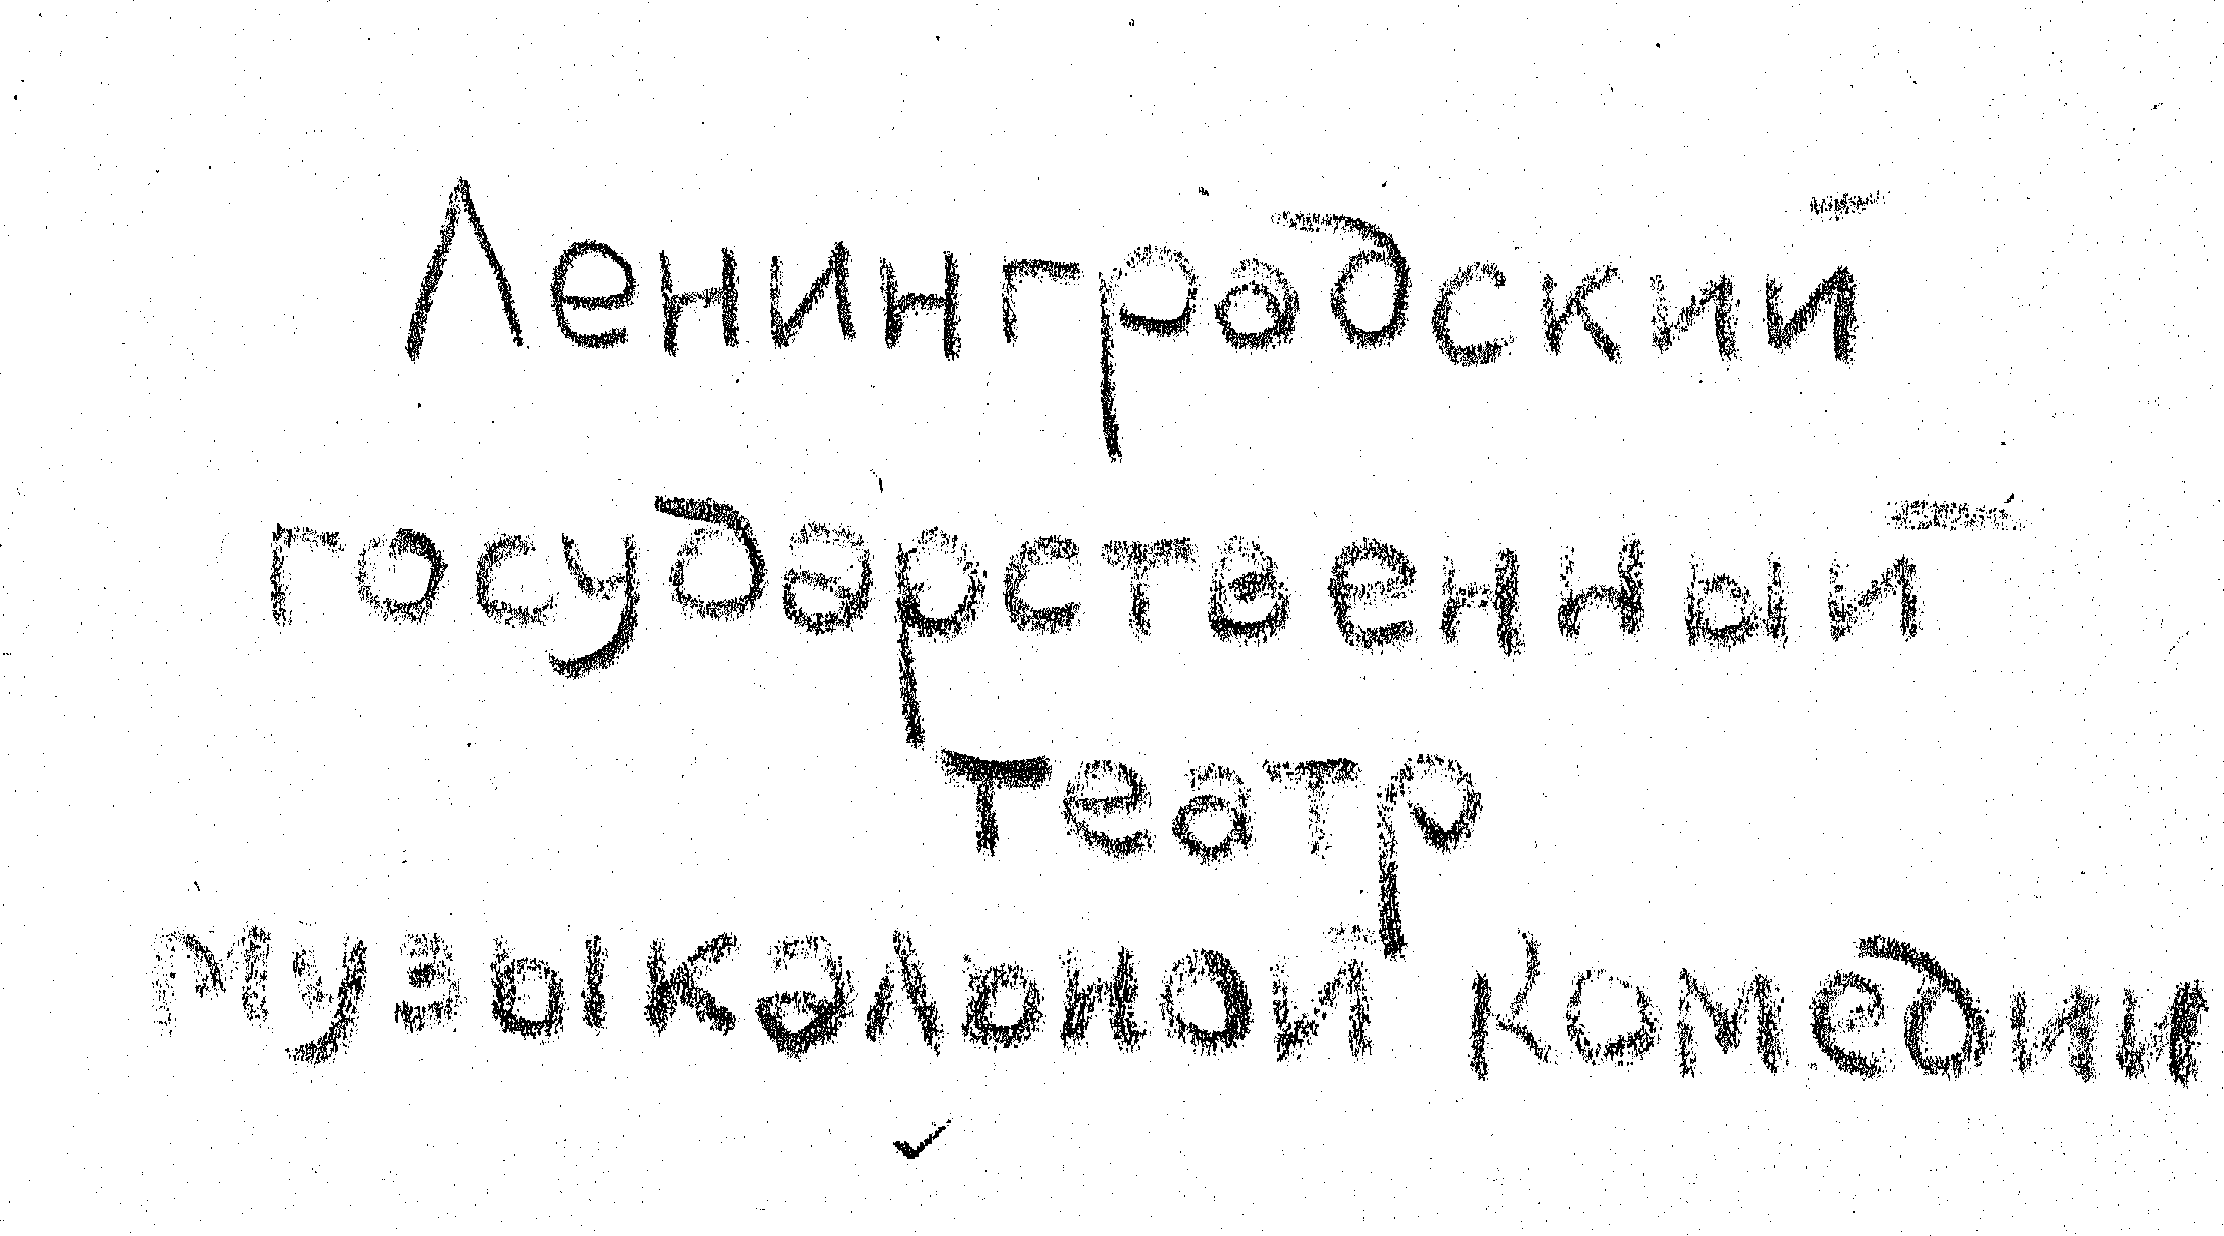 Ленинградский
государственный
театр
музыкальной комедии